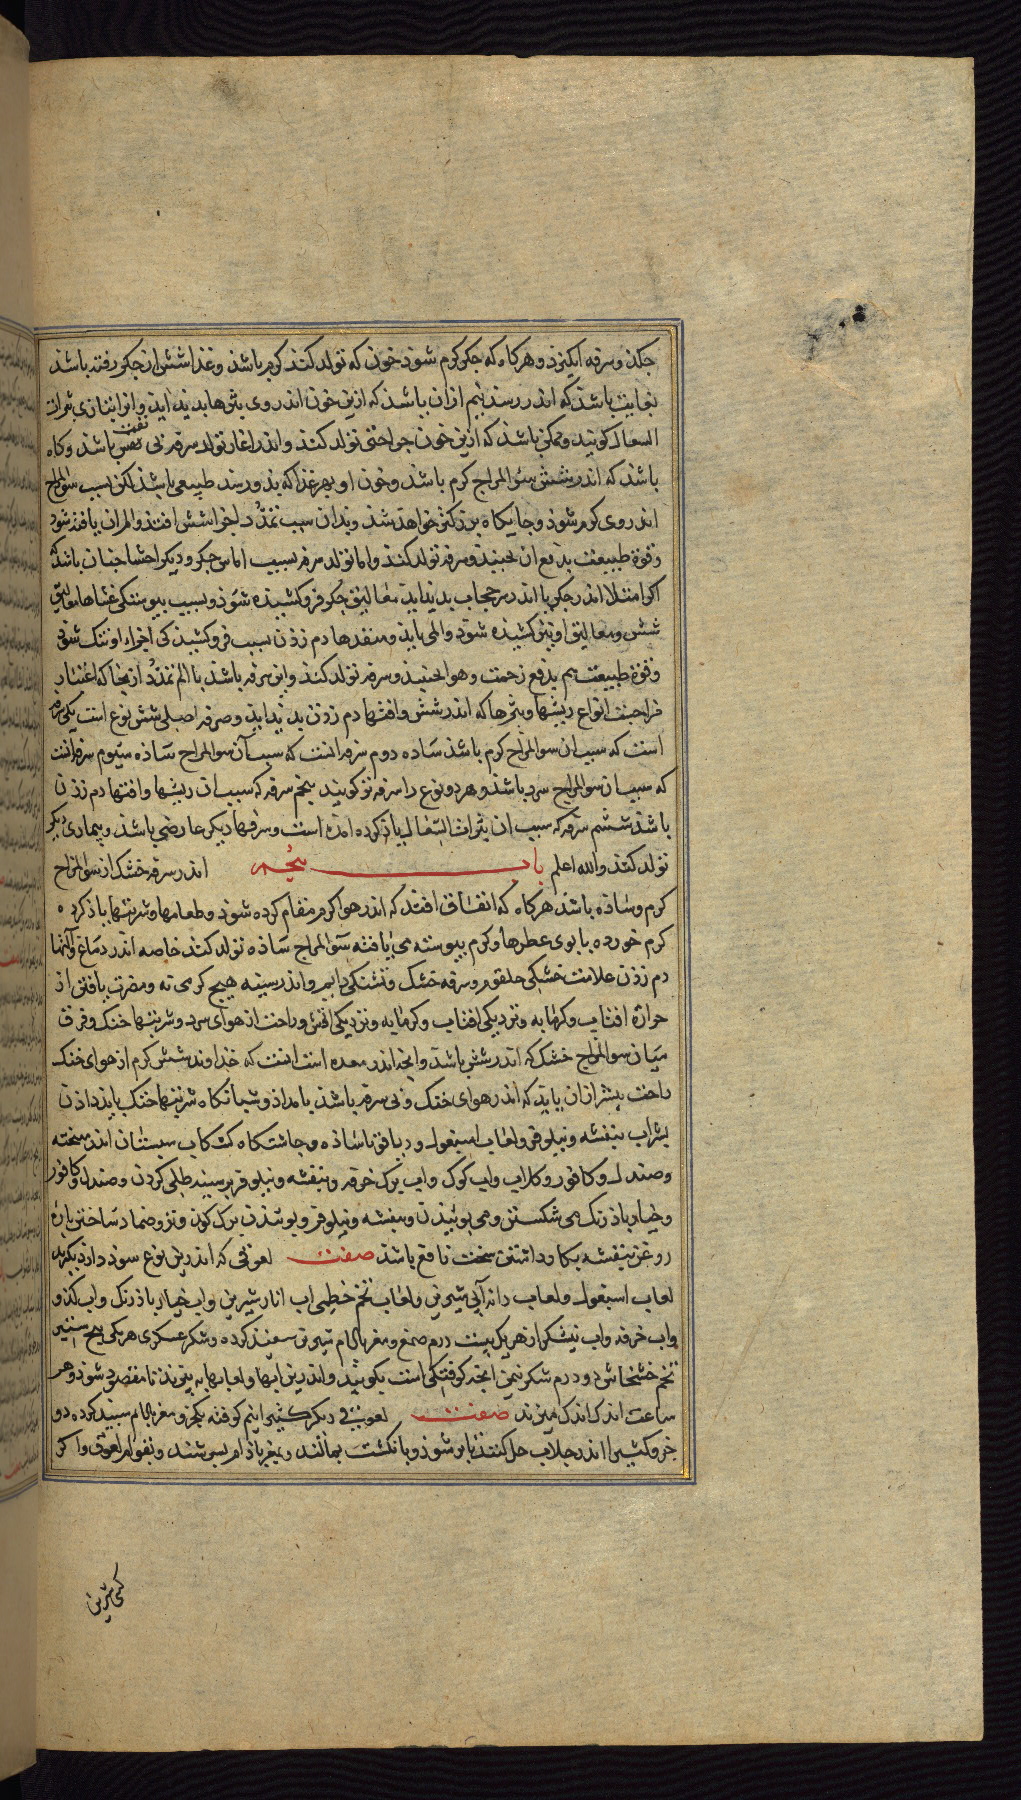 جکد و سرفه انکیزد و هرکاه که جکر کرم شود خون که تولد کند کرم باشد و غذا شش از جکر رفته باشد
بغایت باشد که اندر رسد بیم ازان باشد که ازین خون اندر وی بثرها بدید اید و انرا بتازی بثرات
السعال کویند و ممکن باشد که ازین خون جراحتی تولد کند و اندر اغاز تولد سرفه بی نفث باشد و کاه
باشد که اندر شش سوء المزاج کرم باشد و خون او بهر غذا که بدو رسد طبیعی باشد لکن بسبب سوء المزاج
اندر وی کرم شود و جایکاه بزرکتر خواهد شد و بدان سبب تمدد در اجزا شش افتد و الم ان یافته شود
و قوة طبیعت بدفع ان بجنبد و سرفه تولد کند و اما تولد سرفه بسبب اماس جکر و دیکر احشا چنان باشد که
اکر امتلا اندر جکر یا اندر حجاب بدید اید معالیق جکر فرو کشیده شود و بسبب پیوستکی غشاها معالیق
شش و معالیق او نیز کشیده شود و الم یابد و منفذها دم زدن بسبب فرو کشیدکی اجزاء او تنک شود
و قوة طبیعت هم بدفع زحمت و هوا بجنبد و سرفه تولد کند و این سرفه باشد با الم تمدد ازبجا که اعتبار
فراجست انواع ریشها و بثرها که اندر شش و افتها دم زدن بدید اید و سرفه اصلی شش نوع است یکی سرفه
است که سبب ان سوء المزاج کرم باشد ساده دوم سرفه انست که سبب آن سوء المزاج ساده سیوم سرفه انست
که سبب ان سوء المزاج سرد باشد و هر دو نوع را سرفه تر کویند پنجم سرفه که سبب ان ریشها و افتها دم زدن
باشد ششم سرفه که سبب ان بثرات السعال یاد کرده امده است و سرفهها دیکر عارضی باشد و بیماری دیکر
تولد کند والله اعلم باب پنجم اندر سرفه خشک از سوء المزاج
کرم و ساده باشد هرکاه که اتفاق افتد که اندر هوا کرم مقام کرده شود و طعامها و شربتها یاد کرده
کرم خورده یا بوی عطرها و کرم پیوسته می یافته سوء المزاج ساده تولد کند خاصه اندر دماغ و آلتها
دم زدن علامت خشکی حلقوم و سرفه خشک و تشنکی دایم و اندر سینه هیچ کرمی نه و مضرت یافتن از
حرارة افتاب و کرمابه و نزدیکی افتاب و کرمابه و نزدیکی اتش و راحت از هوای سرد و شربتها خنک و فرق
میان سوء المزاج خشک که اندر شش باشد و انچه اندر معده است انست که خداوند شش کرم از هوای خنک
راحت بیشتر ازان یابد که اندر هوای خنک و بی سرفه باشد بامداد و شبانکاه شربتها خنک باید دادن
بشراب بنفشه و نیلوفر و لعاب اسبغول و دیاقوذا ساده و چاشتکاه کشکاب سبستان اندر پخته
و صندل و کافور و کلاب و اب کوک و اب برک خرفه و بنفشه و نیلوفر بر سینه طلی کردن و صندل و کافور
و خیار باذرنک می شکستن و می بوییدن و بنفشه و نیلوفر و بوییدن برک کوک و تر و ضماد ساختن تازه
روغن بنفشه بکار داشتن سخت نافع باشد صفت لعوقی که اندرین نوع سود دارد بکیرند
لعاب اسبغول و لعاب دانه آبی شیرین و لعاب تخم خطمی اب انار شیرین و اب خیار باذرنک و اب کدو
و اب خرفه و اب نیشکر از هر یکی بیست درم صمغ و مغز بادام شیرین سفید کرده و شکر عسکری هر یکی پنج ستیر
تخم خشخاش دو درم شکر نیمن انچه کوفتنکی است بکوبند و اندرین ابها و لعابها بپزند تا مقصر شود و هر
ساعت اندک اندک میزند صفت لعوقی دیکر کثیرا نیم کوفته یکجزو مغز بادام سپید کرده دو
جزو کثیرا اندر جلاب حل کنند تا بر شود و بانکشت بمالند و مغز بادام بسرشند و بقوام لعوق و اکر
کمی شربت